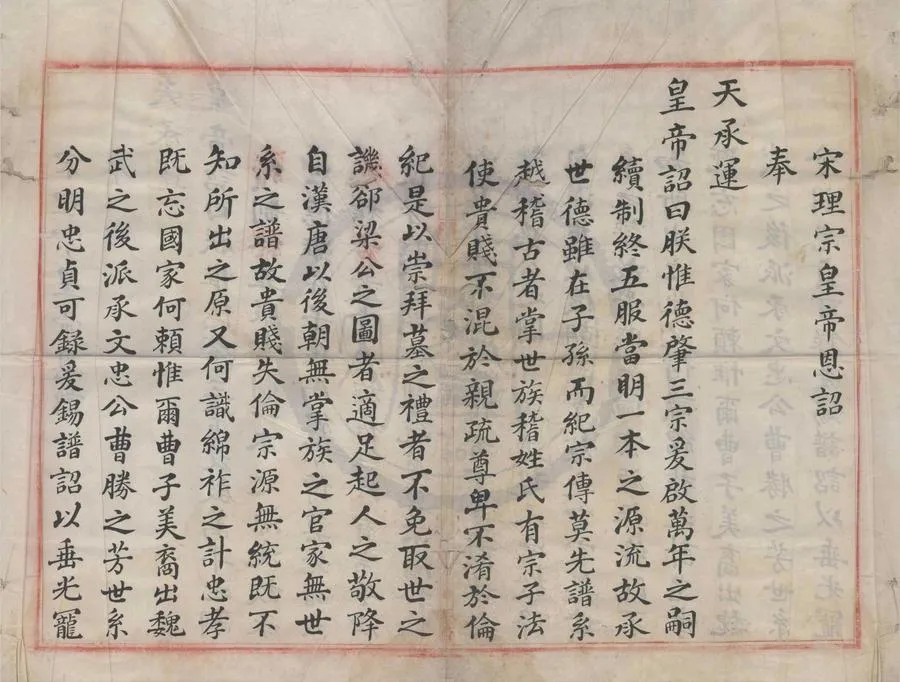 宋理宗皇帝恩詔
奉
天承運
皇帝詔曰朕惟德肇三宗爰啟萬年之嗣
續制終五服當明一本之源流故承
世德雖在子孫而紀宗傳莫先譜系
越稽古者掌世族稽姓氏有宗子法
使貴賤不混於親疏尊卑不淆於倫
紀是以崇拜墓之禮者不免取世之
譏郤梁公之圖者適足起人之敬降
自漢唐以後朝無掌族之官家無世
系之譜故貴賤失倫宗源無統既不
知所出之原又何識綿祚之計忠孝
既忘國家何賴惟爾曹子美裔出魏
武之後派承文忠公曹勝之芳世系
分明忠貞可録爰錫譜詔以垂光寵